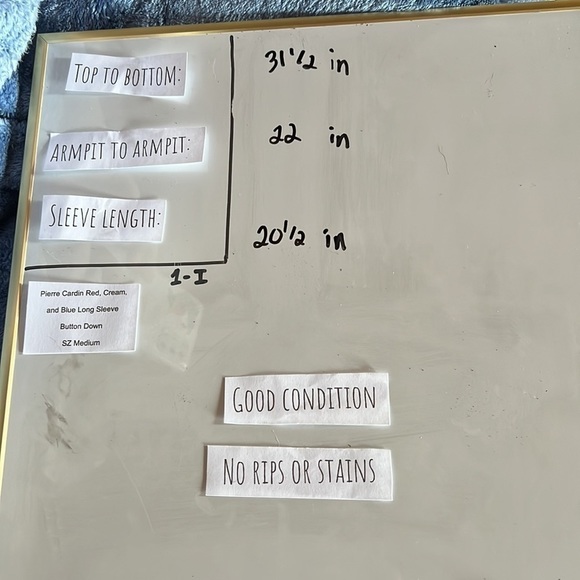 TOP TO BOTTOM: 31 1/2 in
ARMPIT TO ARMPIT: 22 in
SLEEVE LENGTH: 20 1/2 in
1-I
Pierre Cardin Red, Cream,
and Blue Long Sleeve
Button Down
SZ Medium
GOOD CONDITION
NO RIPS OR STAINS